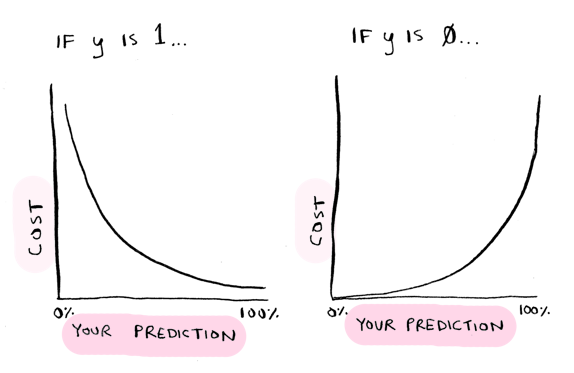 IF y IS 1...
COST
0%
100%
YOUR PREDICTION
IF y IS 0...
COST
0%
100%
YOUR PREDICTION